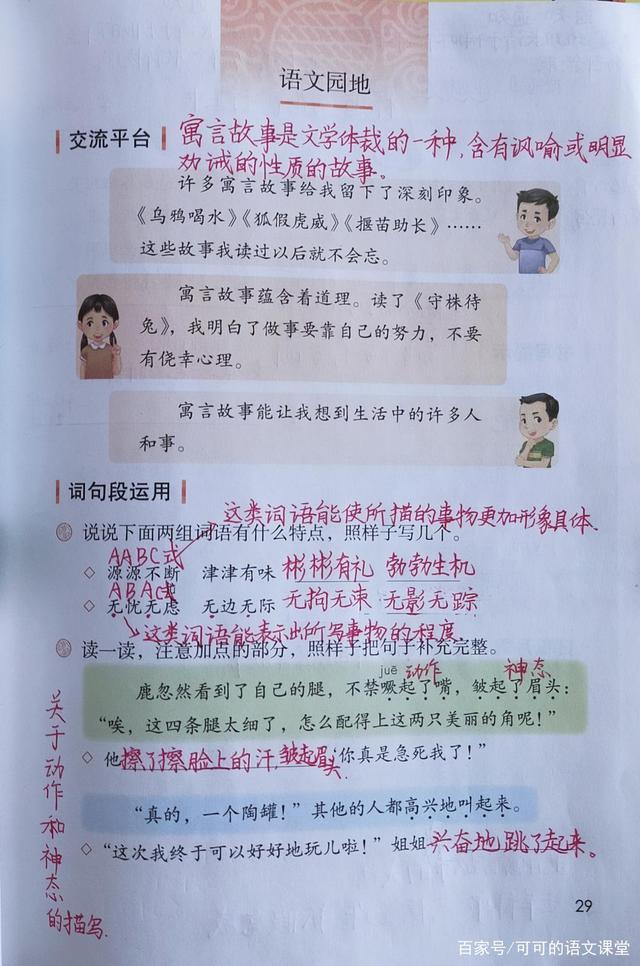 语文园地
交流平台 寓言故事是文学体裁的一种,含有讽喻或明显
劝诫的性质的故事。
许多寓言故事给我留下了深刻印象。
《乌鸦喝水》《狐假虎威》《揠苗助长》……
这些故事我读过以后就不会忘。
寓言故事蕴含着道理。读了《守株待
兔》，我明白了做事要靠自己的努力，不要
有侥幸心理。
寓言故事能让我想到生活中的许多人
和事。
词句段运用
这类词语能使所描的事物更加形象具体.
说说下面两组词语有什么特点，照样子写几个。
AABC式
源源不断 津津有味 彬彬有礼 勃勃生机
ABAC式
无忧无虑 无边无际 无拘无束 无影无踪
这类词语能表示出所写事物的程度
读一读，注意加点的部分，照样子把句子补充完整。
juē 动作 神态
鹿忽然看到了自己的腿，不禁噘起了嘴，皱起了眉头：
“唉，这四条腿太细了，怎么配得上这两只美丽的角呢！”
他擦了擦脸上的汗,皱起眉头.“你真是急死我了！”
“真的，一个陶罐！”其他的人都高兴地叫起来。
“这次我终于可以好好地玩儿啦！”姐姐兴奋地跳了起来。
关于动作和神态的描写.
29
百家号/可可的语文课堂